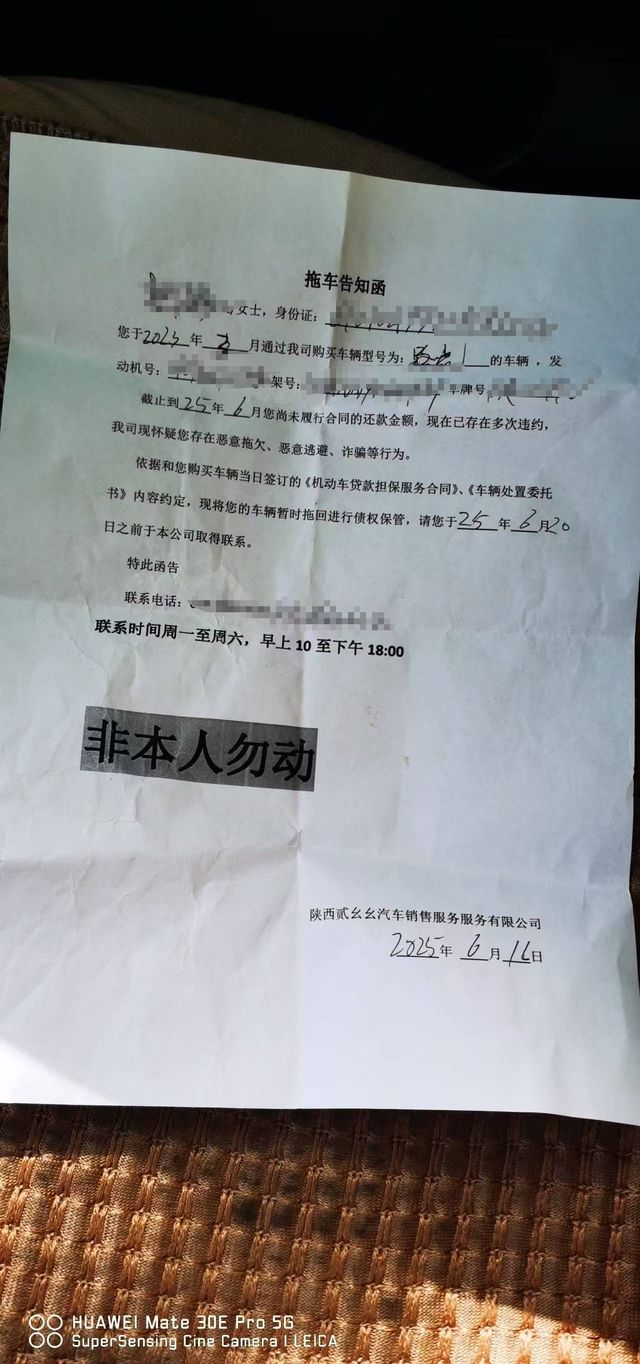 拖车告知函
女士，身份证：
您于2025年 月通过我司购买车辆型号为： 的车辆，发
动机号： 架号： 车牌号
截止到25年6月您尚未履行合同的还款金额，现在已存在多次违约，
我司现怀疑您存在恶意拖欠、恶意逃避、诈骗等行为。
依据和您购买车辆当日签订的《机动车贷款担保服务合同》、《车辆处置委托
书》内容约定，现将您的车辆暂时拖回进行债权保管，请您于25年6月20
日之前于本公司取得联系。
特此函告
联系电话：
联系时间周一至周六，早上10至下午18:00
非本人勿动
陕西贰幺幺汽车销售服务服务有限公司
2025年6月16日
HUAWEI Mate 30E Pro 5G
SuperSensing Cine Camera | LEICA